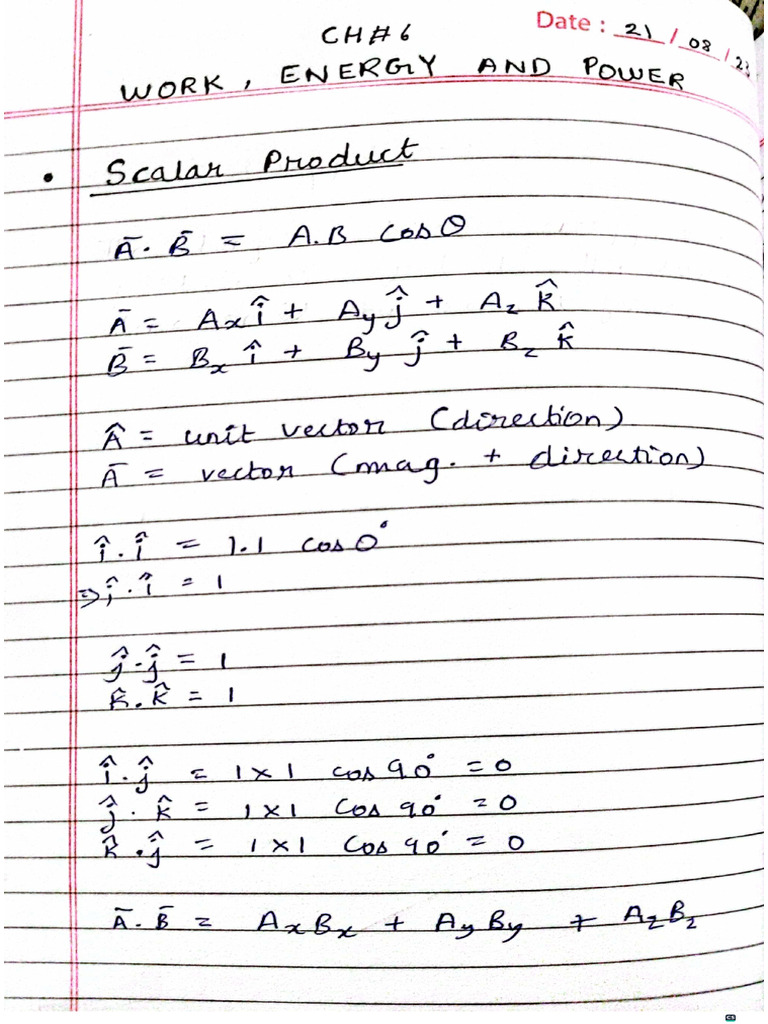 CH#6
Date : 21 / 08 / 23
WORK, ENERGY AND POWER
• Scalar Product
Ā. B̄ = A.B cosθ
Ā = Axî + Ayĵ + Az k̂
B̄ = Bx î + By ĵ + Bz k̂
Â = unit vector (direction)
Ā = vector (mag. + direction)
î.î = 1.1 cos0°
⇒ î.î = 1
ĵ.ĵ = 1
k̂.k̂ = 1
î.ĵ = 1×1 cos90° = 0
ĵ.k̂ = 1×1 cos90° = 0
k̂.ĵ = 1×1 cos90° = 0
Ā. B̄ = AxBx + AyBy + AzBz
CS